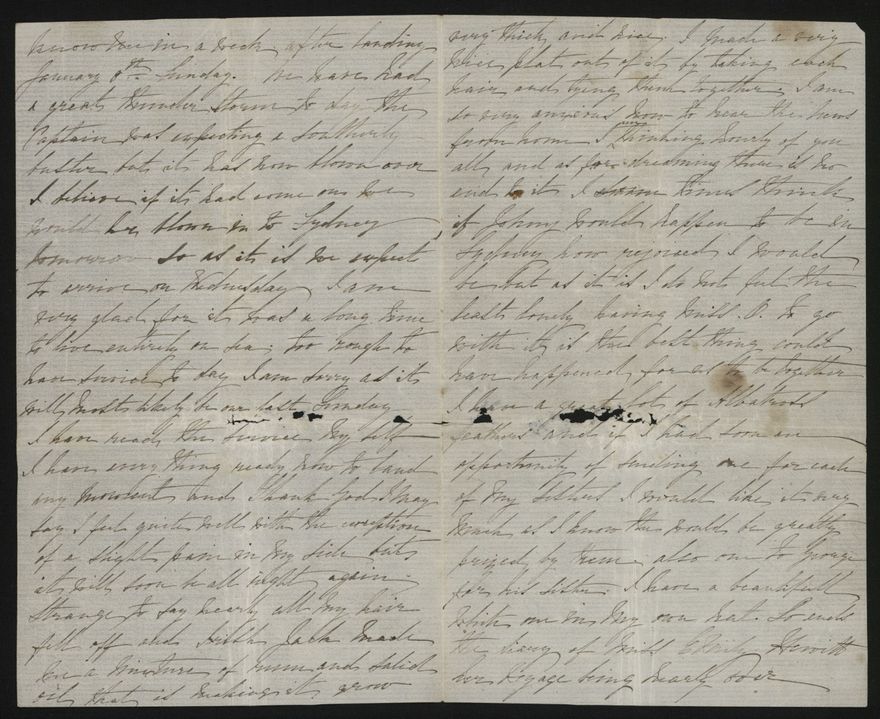 know me in a week after landing
January 8th Sunday. We have had
a great thunder storm to day the
Captain was expecting a southerly
buster but it has now blown over
I believe if it had come on we
would be blown in to Sydney
tomorrow so as it is we expect
to arrive on Wednesday I am
very glad for it was a long time
to live entirely on sea; too rough to
have service to day I am sorry as it
will most likely be our last Sunday
I have read the service my self
I have every thing ready now to land
any moment and thank God I may
say I feel quite well with the exception
of a slight pain in my side but
it will soon be all right again.
Strange to say nearly all my hair
fell off and Jack made
me a mixture of rum and salid
oil that is making it grow
very thick and nice. I made a very
nice plat out of it by taking each
hair and tying them together. I am
so very anxious now to hear the news
from home I thinking hourly of you
all and as for dreaming there is no
end to it I some times think
if Johny would happen to be in
Sydney how rejoiced I would
be but as it is I do not feel the
least lonely having Miss. O. to go
with it is the best thing could
have happened for us to be together
I have a great lot of Albatross
feathers and if I had soon an
opportunity of sending one for each
of my sisters I would like it very
much as I know they would be greatly
prized by them also one to George
for his sister. I have a beautifull
white one in my own hat. So ends
the diary of Miss Emily Hewitt
her voyage being nearly over